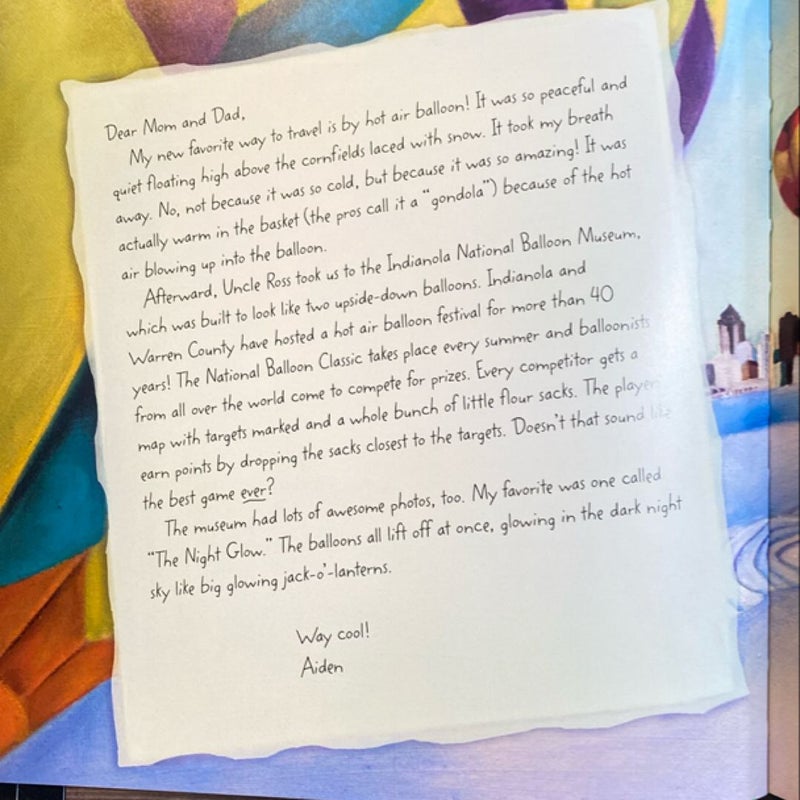 Dear Mom and Dad,
My new favorite way to travel is by hot air balloon! It was so peaceful and
quiet floating high above the cornfields laced with snow. It took my breath
away. No, not because it was so cold, but because it was so amazing! It was
actually warm in the basket (the pros call it a "gondola") because of the hot
air blowing up into the balloon.
Afterward, Uncle Ross took us to the Indianola National Balloon Museum,
which was built to look like two upside-down balloons. Indianola and
Warren County have hosted a hot air balloon festival for more than 40
years! The National Balloon Classic takes place every summer and balloonists
from all over the world come to compete for prizes. Every competitor gets a
map with targets marked and a whole bunch of little flour sacks. The player
earn points by dropping the sacks closest to the targets. Doesn't that sound like
the best game ever?
The museum had lots of awesome photos, too. My favorite was one called
"The Night Glow." The balloons all lift off at once, glowing in the dark night
sky like big glowing jack-o'-lanterns.
Way cool!
Aiden